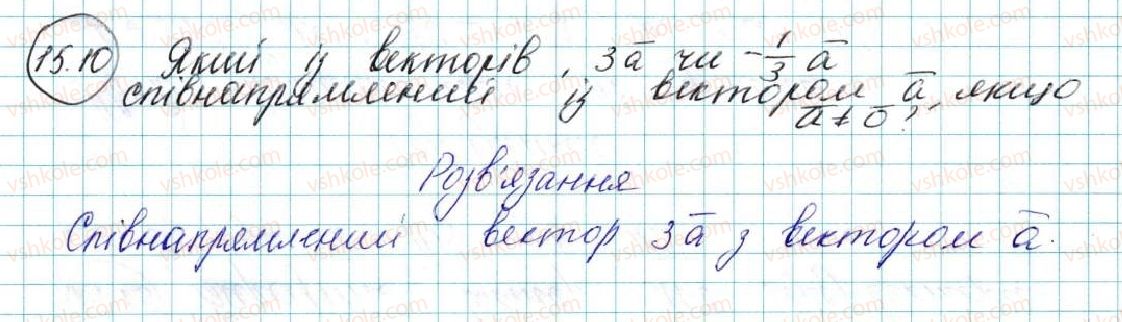 15.10 Який із векторів, 3a̅ чи -1/3 a̅
співнапрямлений із вектором a̅, якщо
a̅ ≠ 0̅?
Розв'язання
Співнапрямлений вектор 3a̅ з вектором a̅.